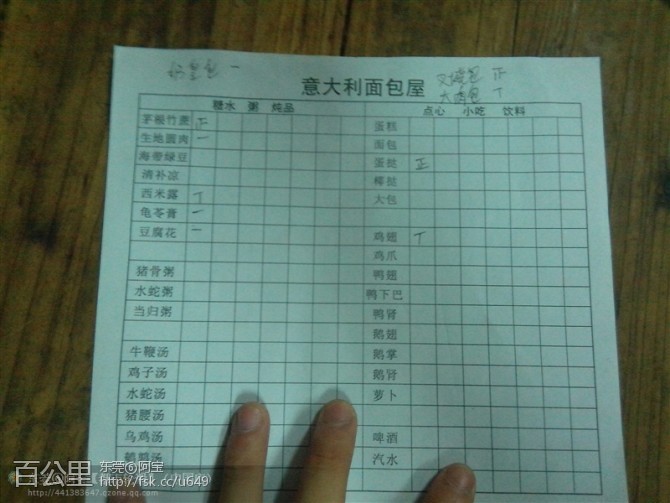 奶皇包 一
意大利面包屋
叉烧包 正
大鸡包 丅
糖水 粥 炖品
点心 小吃 饮料
茅根竹蔗 正
蛋糕
生地圆肉 一
面包
海带绿豆
蛋挞 正
清补凉
椰挞
西米露 丅
大包
龟苓膏 一
豆腐花 一
鸡翅 丅
鸡爪
猪骨粥
鸭翅
水蛇粥
鸭下巴
当归粥
鸭肾
鹅翅
牛鞭汤
鹅掌
鸡子汤
鹅肾
水蛇汤
萝卜
猪腰汤
乌鸡汤
啤酒
汽水
百公里
东莞@阿宝
http://fsk.cc/u649
http://441383647.qzone.qq.com